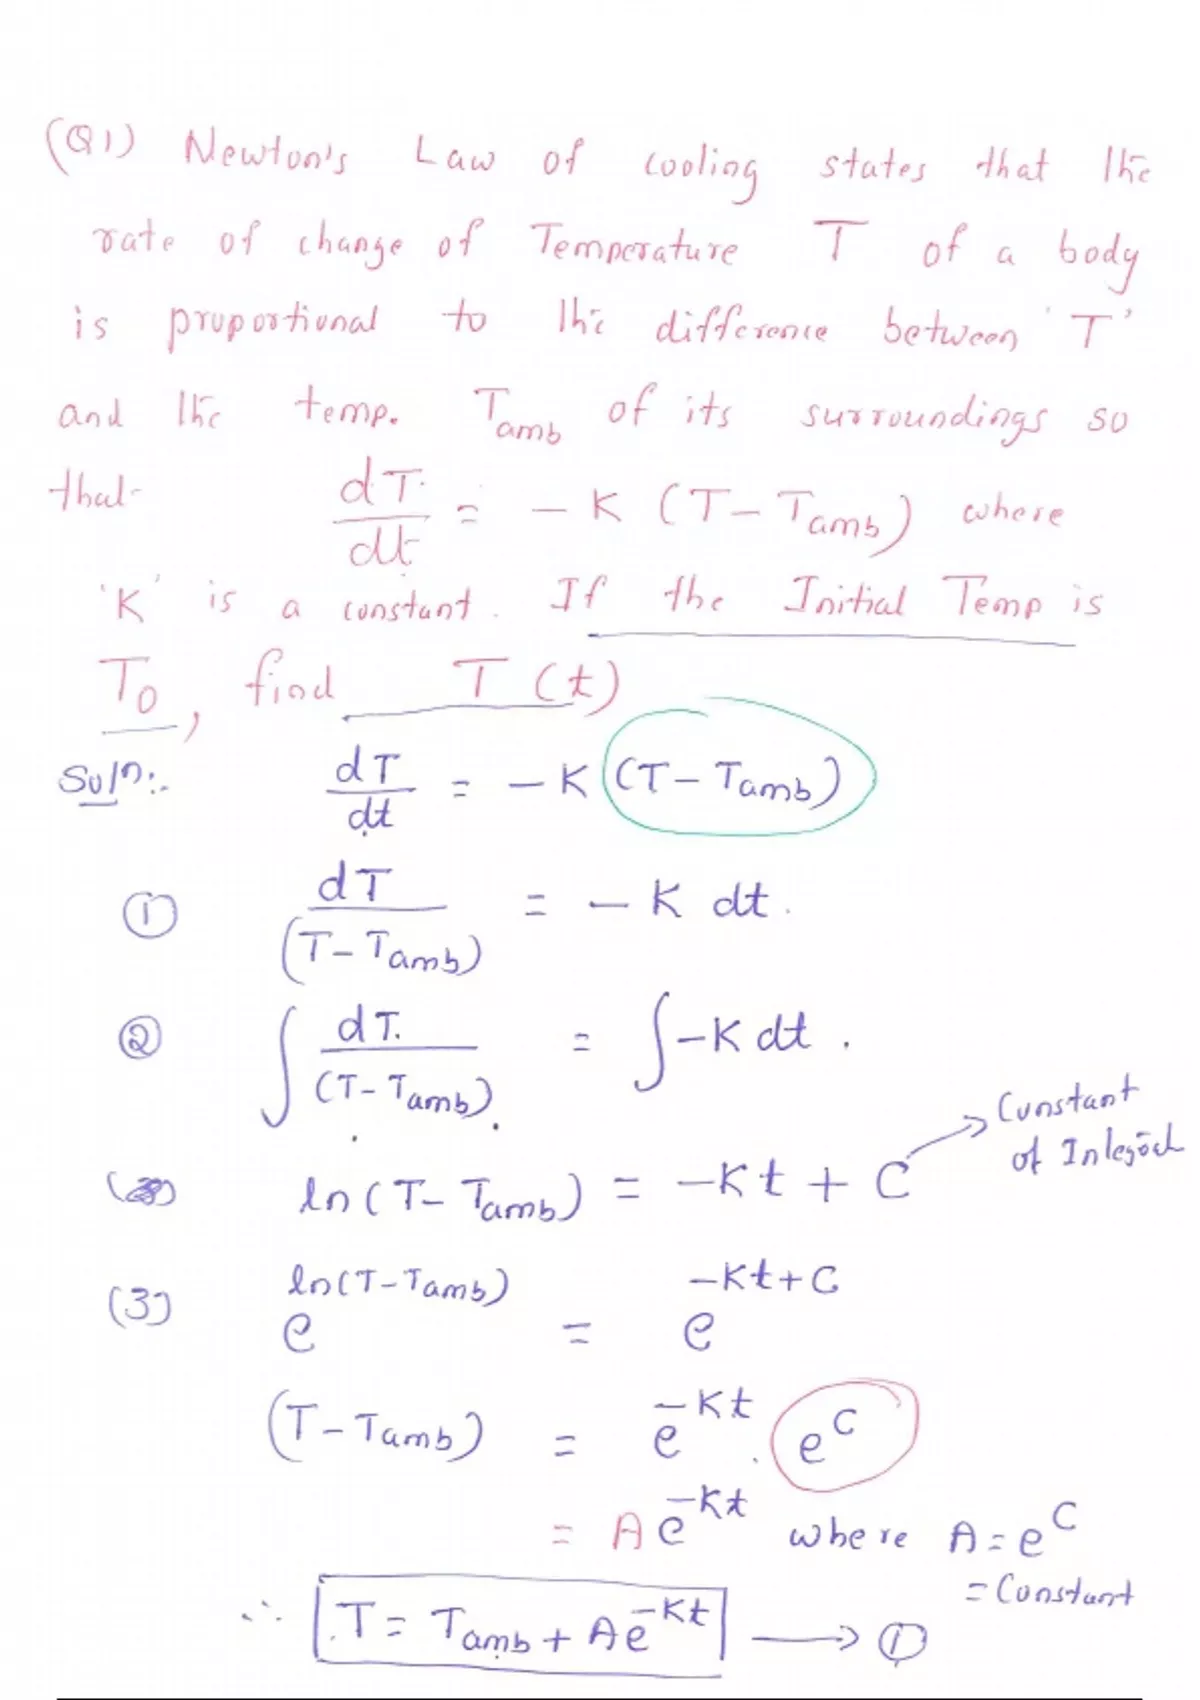 (Q1) Newton's Law of cooling states that the
rate of change of Temperature T of a body
is proportional to the difference between 'T'
and the temp. Tamb of its surroundings so
that dT/dt = -K (T - Tamb) where
'K' is a constant. If the Initial Temp is
T0, find T(t)
Soln:- dT/dt = -K (T - Tamb)
① dT/(T - Tamb) = -K dt.
② ∫ dT/(T - Tamb) = ∫ -K dt.
ln(T - Tamb) = -Kt + C → Constant of
(3) e^ln(T - Tamb) = e^-Kt+C
(T - Tamb) = e^-Kt . e^C
= A e^-Kt where A = e^C
= Constant
∴ T = Tamb + A e^-Kt → ①